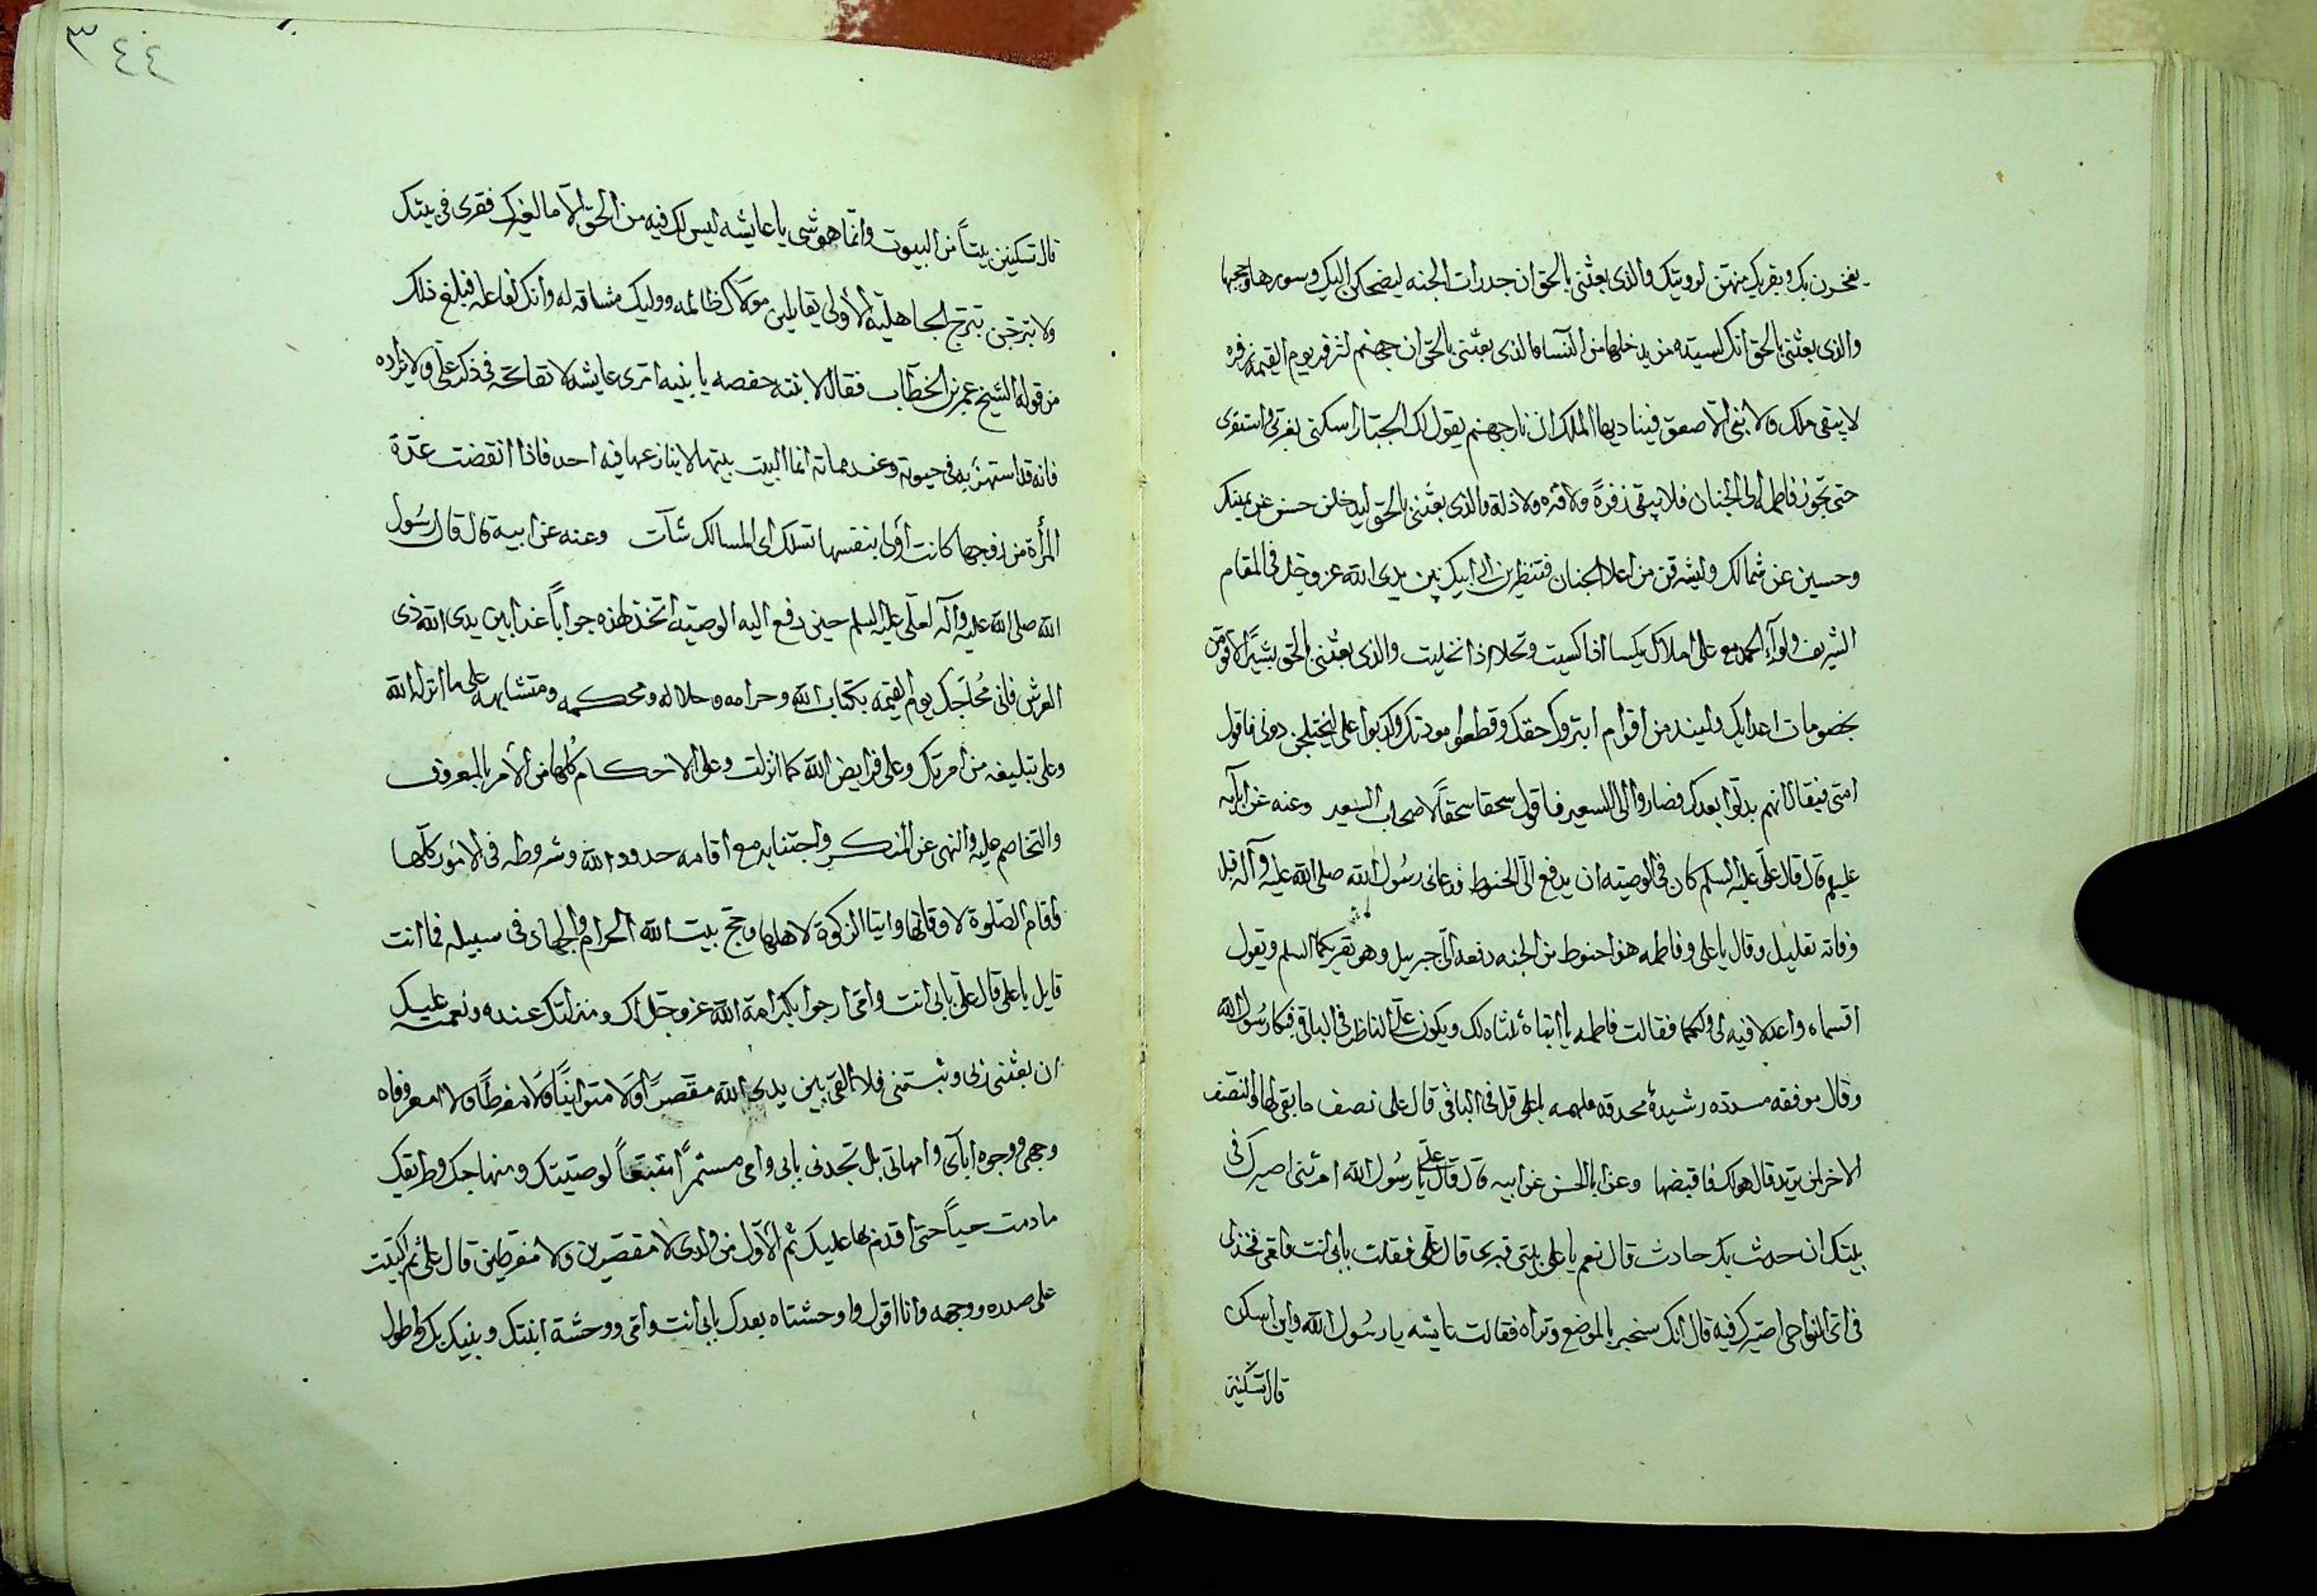 يفخرن بك وبقربك منهن لرويتك والذي بعثني بالحق ان جدرات الجنه ليضحكن اليك وسورها وحجبها
والذي بعثني بالحق انك لسيده من يدخلها من النسا والذي بعثني بالحق ان جهنم لتزفر يوم القيمه زفره
لا يبقى ملك ولا نبي الا صعق فيناديها الملك ان نار جهنم يقول لك الجبار اسكني بعزتي واستقري
حتى تجوز فاطمه الى الجنان فلا يبقى زفرة ولا قتره ولا ذلة والذي بعثني بالحق ليدخلن حسن عن يمينك
وحسين عن شمالك وليشرقن من اعلا الجنان فتنظرين الى ابيك بين يدي الله عز وجل في المقام
الشريف ولواء الحمد مع علي امامك يكسا اذا كسيت وتحلا اذا تحليت والذي بعثني بالحق بشيرا لاقومن
بخصومات اعدايك وليندمن اقوام ابتزوك حقك وقطعوا مودتك وكذبوا علي ليختلجن دوني فاقول
امتي فيقال انهم بدلوا بعدك فصاروا الى السعير فاقول سحقا سحقاً لاصحاب السعير وعنه عن ابيه
عليهم قال قال علي عليه السلم كان في الوصيه ان يدفع الي الحنوط فدعاني رسول الله صلى الله عليه وآله قبل
وفاته بقليل وقال يا علي وفاطمه هذا حنوط من الجنه دفعه الي جبرييل وهو يقريكما السلم ويقول
اقسماه واعدلا فيه لي ولكما فقالت فاطمه يا ابتاه ثلثاه لك ويكون علي الناظر في الباقي فبكا رسول الله
وقال موفقه مسدده رشيدة محدقه ملهمه يا علي قل في الباقي قال علي نصف ما بقي لها والنصف
الاخر لمن تريد قال هو لك فاقبضها وعن ابا الحسن عن ابيه قال قال علي يا رسول الله امرتني اصيرك في
بيتك ان حدث بك حادث قال نعم يا علي بيتي قبري قال علي فقلت بابي انت وامي فحد لي
في اي النواحي اصيرك فيه قال انك ستخبر بالموضع وتراه فقالت عايشه يا رسول الله واين اسكن
قال تسكنين
٣٤٤
قال تسكنين بيتاً من البيوت وانما هو شي يا عايشه ليس لك فيه من الحق الا ما لغيرك فقري في بيتك
ولا تبرجن تبرج الجاهلية الاولى تقاتلين مولاك ظالمه ووليك مشاقه له وانك لفاعله فبلغ ذلك
من قوله الشيخ عمر بن الخطاب فقال لابنته حفصه يا بنيه مري عايشه لا تفاتحه في ذكر علي ولا يراده
فانه قد استهتر به في حيوته وعند مماته انما البيت بيتها لا ينازعها فيه احد فاذا انقضت عدة
المرأة من زوجها كانت أولى بنفسها تسلك اي المسالك شاءت وعنه عن ابيه قال قال رسول
الله صلى الله عليه وآله لعلي عليه السلم حين دفع اليه الوصيه اتخذ لهذه جواباً غدا بين يدي الله ذي
العرش فاني محاجك يوم القيمه بكتاب الله وحرامه وحلاله ومحكمه ومتشابهه على ما انزله الله
وعلى تبليغه من امرتك وعلى فرايض الله كما انزلت وعلى الاحكام كلها من الأمر بالمعروف
والتخاصم عليه والنهي عن المنكر واجتنابه مع اقامه حدود الله وشروطه في الامور كلها
واقام الصلوة لاوقاتها وايتا الزكوة لاهلها وحج بيت الله الحرام والجهاد في سبيله فما انت
قايل يا علي قال علي بابي انت وامي ارجوا بكرامة الله عز وجل لك ومنزلتك عنده ونعمته عليك
ان يعثني ربي ويثبتني فلا القى بين يدي الله مقصرا ولا متوانياً ولا مفرطاً ولا امعر وفاه
وجهي ووجوه اباي وامهاتي بل تجدني بابي وامي مستمراً متبعاً لوصيتك ومنهاجك وطريقك
ما دمت حياً حتى اقدم بها عليك ثم الاول من ولدي لا مقصرين ولا مفرطين قال علي ثم اكببت
على صدره ووجهه وانا اقول واوحشتاه بعدك بابي انت وامي ووحشة ابنتك وبنيك بك واطول